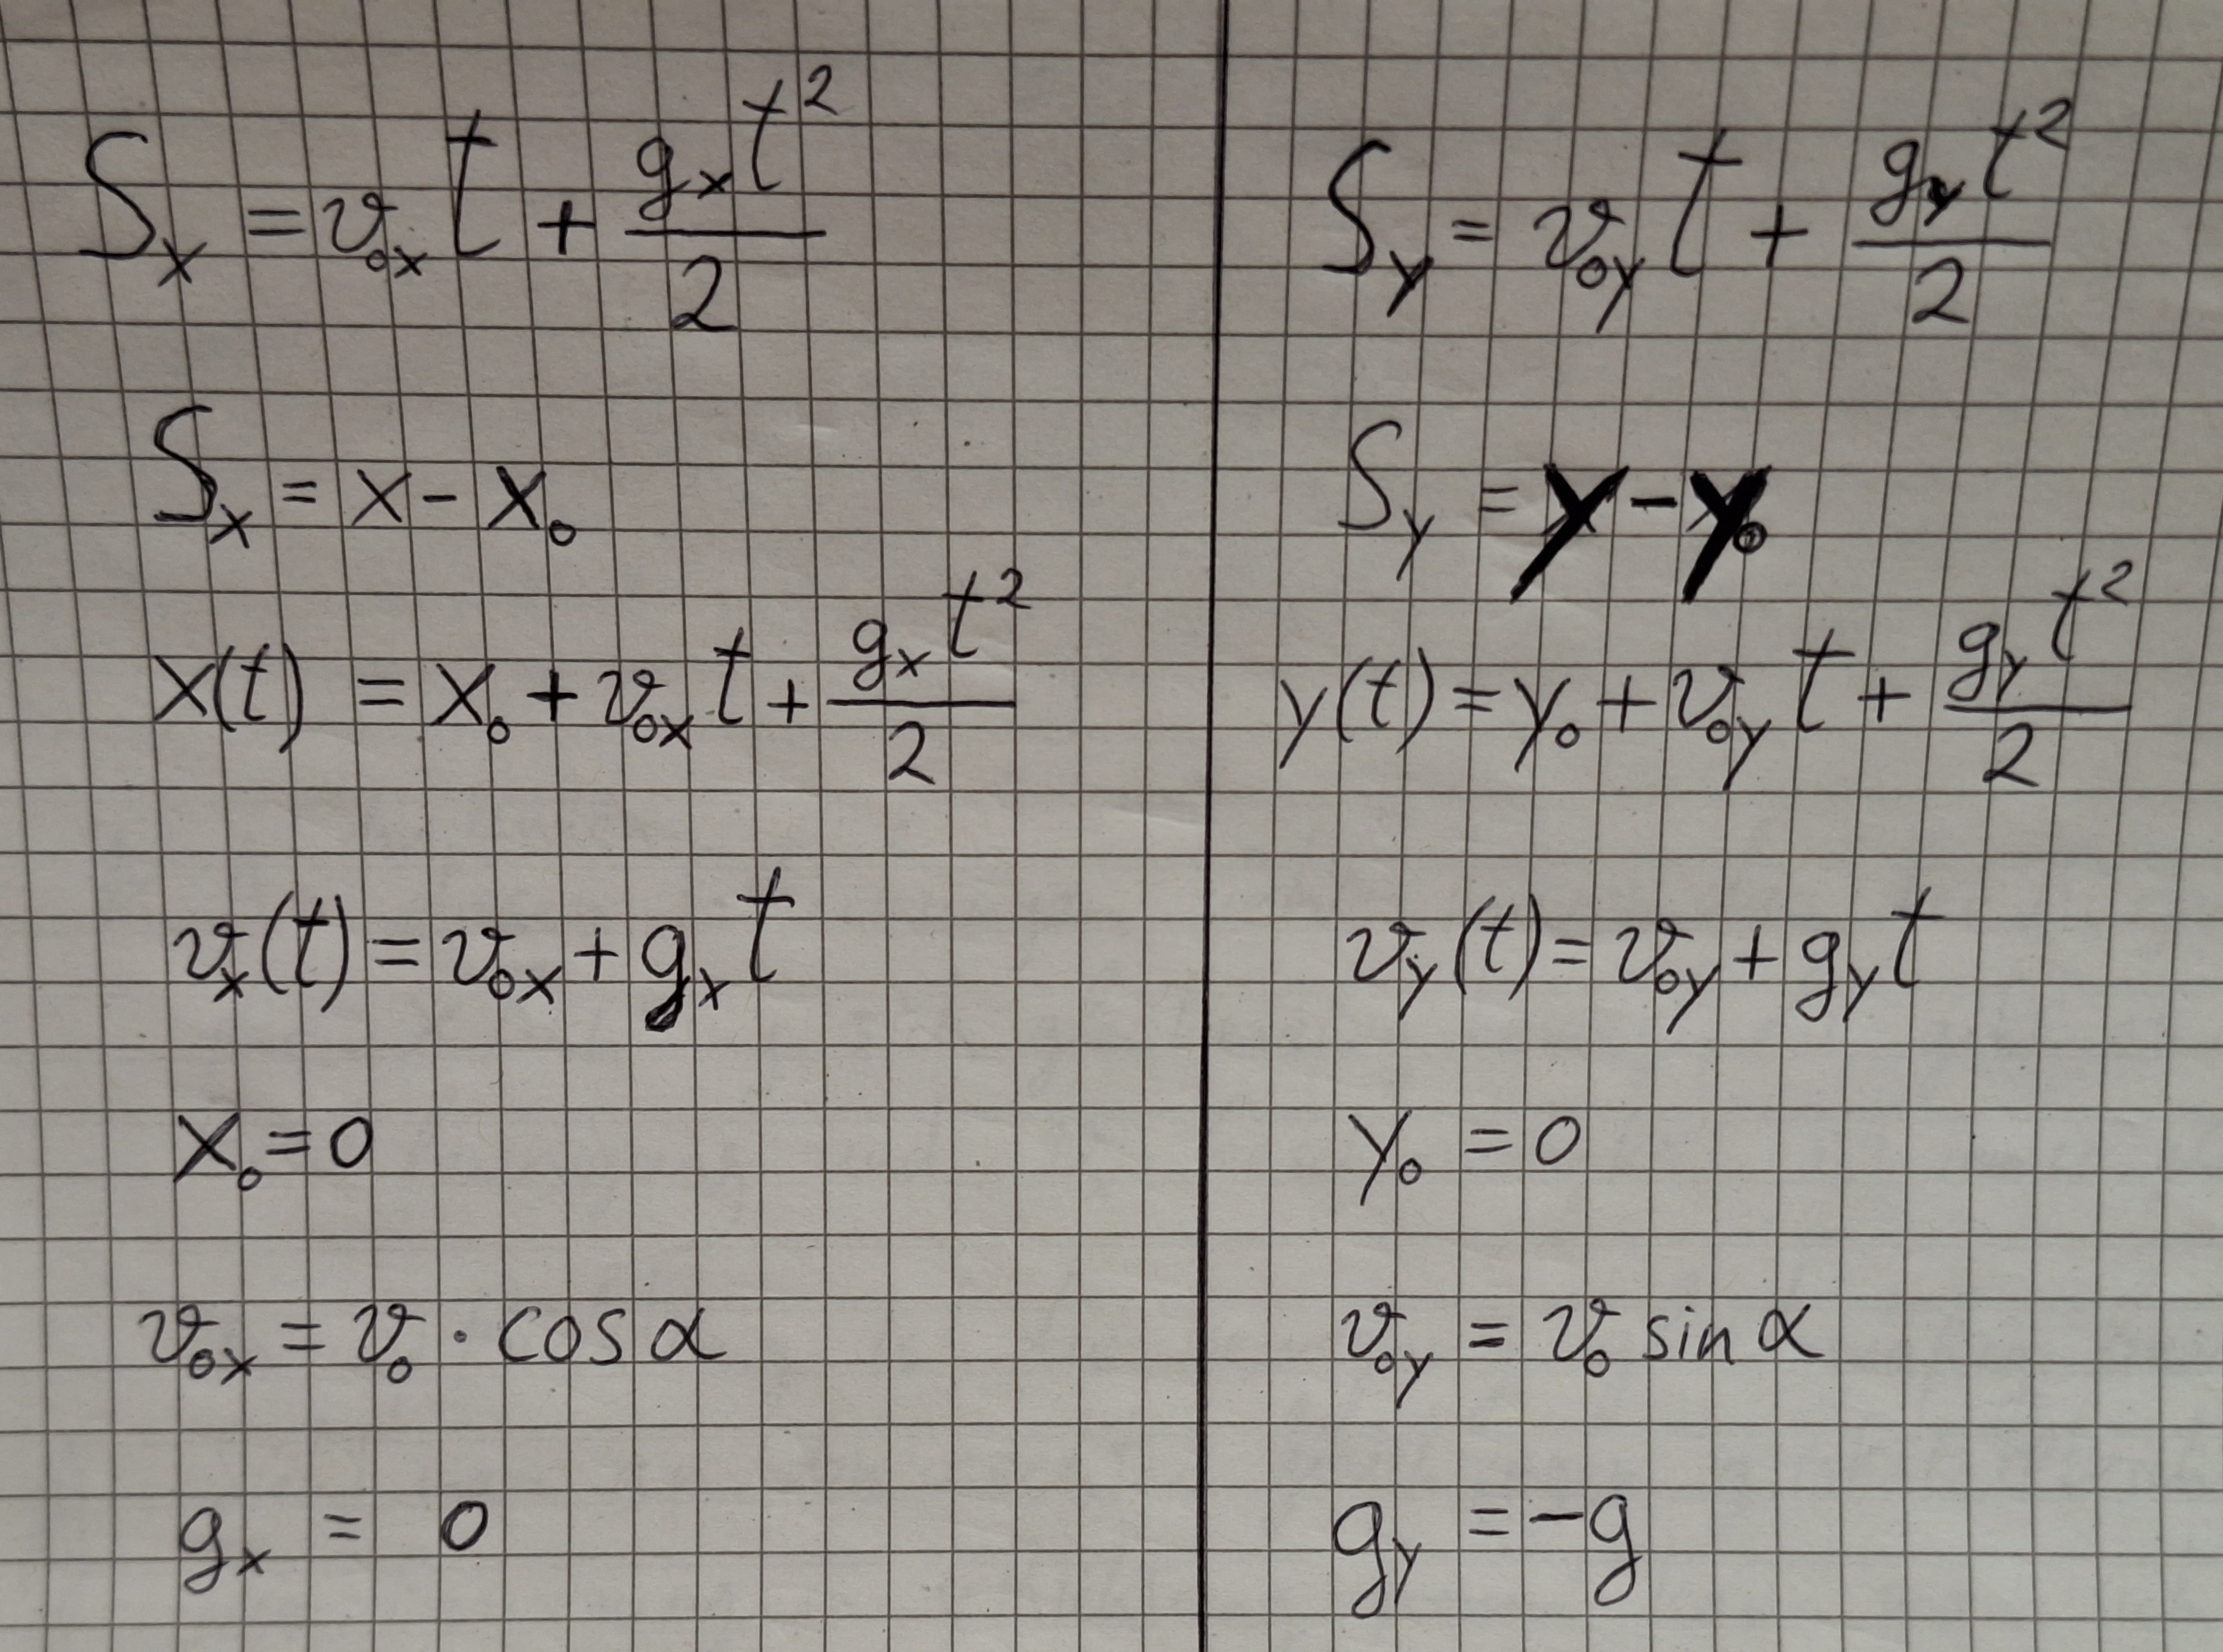 Sₓ = v₀ₓt + gₓt²/2
Sₓ = x - x₀
x(t) = x₀ + v₀ₓt + gₓt²/2
vₓ(t) = v₀ₓ + gₓt
x₀ = 0
v₀ₓ = v₀ · cos α
gₓ = 0
S_y = v₀_y t + g_y t²/2
S_y = y - y₀
y(t) = y₀ + v₀_y t + g_y t²/2
v_y(t) = v₀_y + g_y t
y₀ = 0
v₀_y = v₀ sin α
g_y = -g